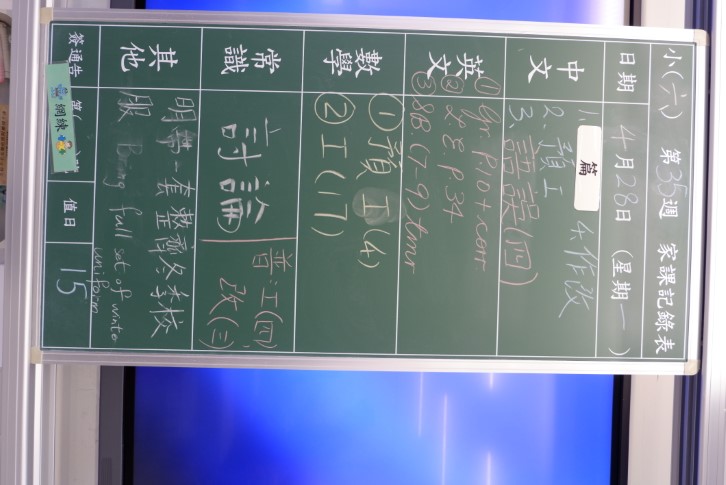 小(六) 第35週 家課記錄表
日期 4月28日 (星期一)
中文 1. 篇 4.作改
2. 預工
3. 語誤(四)
英文 ① Gr P.10 + corr
② L.E. P.34
③ SB (7-9) tmr
數學 ① 預工(4)
② 工(17)
常識 討論 普:工(四)
改(三)
其他 明帶一套整齊冬季校
服 Bring full set of winter
uniform
簽通告 第( 值日 15
網練